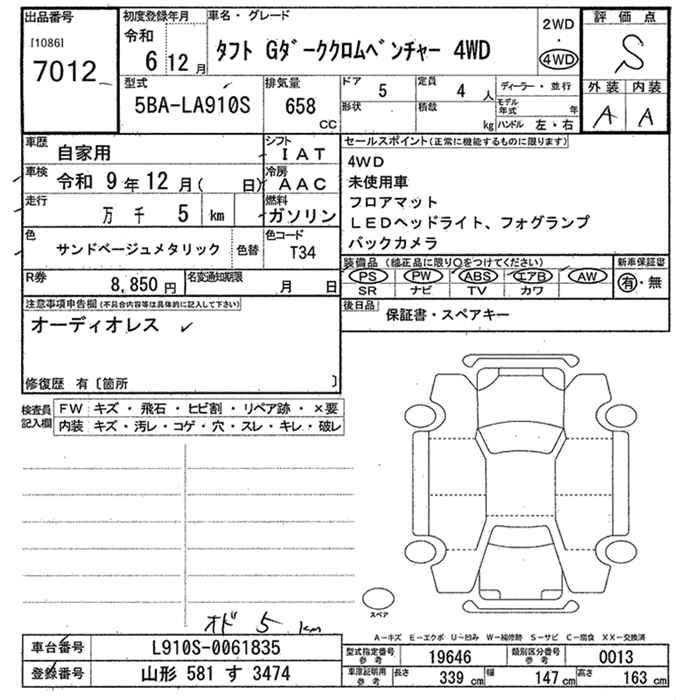 出品番号
[1086]
7012
初度登録年月
令和
6 12 月
車名・グレード
タフト Gダーククロムベンチャー 4WD
2WD
・
4WD
評価点
S
外装 内装
A A
型式
5BA-LA910S
排気量
658
CC
ドア
5
定員
4 人
形状
積載
kg
ディーラー・並行
モデル年式 年
ハンドル 左・右
車歴
自家用
シフト
IAT
車検
令和 9 年 12 月( 日)
冷房
AAC
走行
万 千 5 km
燃料
ガソリン
色
サンドベージュメタリック
色替
色コード
T34
R券
8,850 円
名変通知期限
月 日
セールスポイント(正常に機能するものに限ります)
4WD
未使用車
フロアマット
LEDヘッドライト、フォグランプ
バックカメラ
装備品(純正品に限り○をつけてください)
PS PW ABS エアB AW
SR ナビ TV カワ
新車保証書
有・無
後日品
保証書・スペアキー
注意事項申告欄(不具合内容等は具体的に記入して下さい)
オーディオレス
修復歴 有〔箇所 〕
検査員
記入欄
FW キズ・飛石・ヒビ割・リペア跡・×要
内装 キズ・汚レ・コゲ・穴・スレ・キレ・破レ
オド 5 km
スペア
A−キズ E−エクボ U−凹み W−補修跡 S−サビ C−腐食 XX−交換済
車台番号
L910S-0061835
登録番号
山形 581 す 3474
型式指定番号
参考
19646
類別区分番号
参考
0013
車庫証明用
参考
長さ
339 cm
幅
147 cm
高さ
163 cm